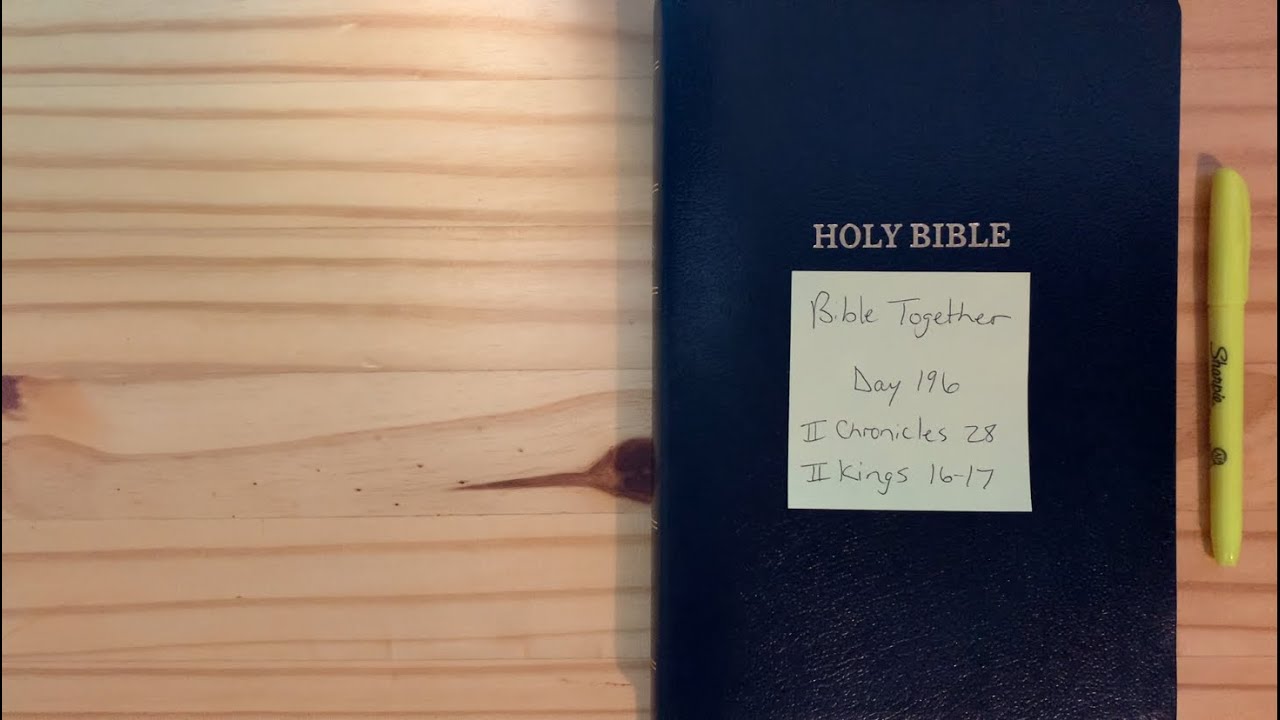 HOLY BIBLE
Bible Together
Day 196
II Chronicles 28
II Kings 16-17
Sharpie